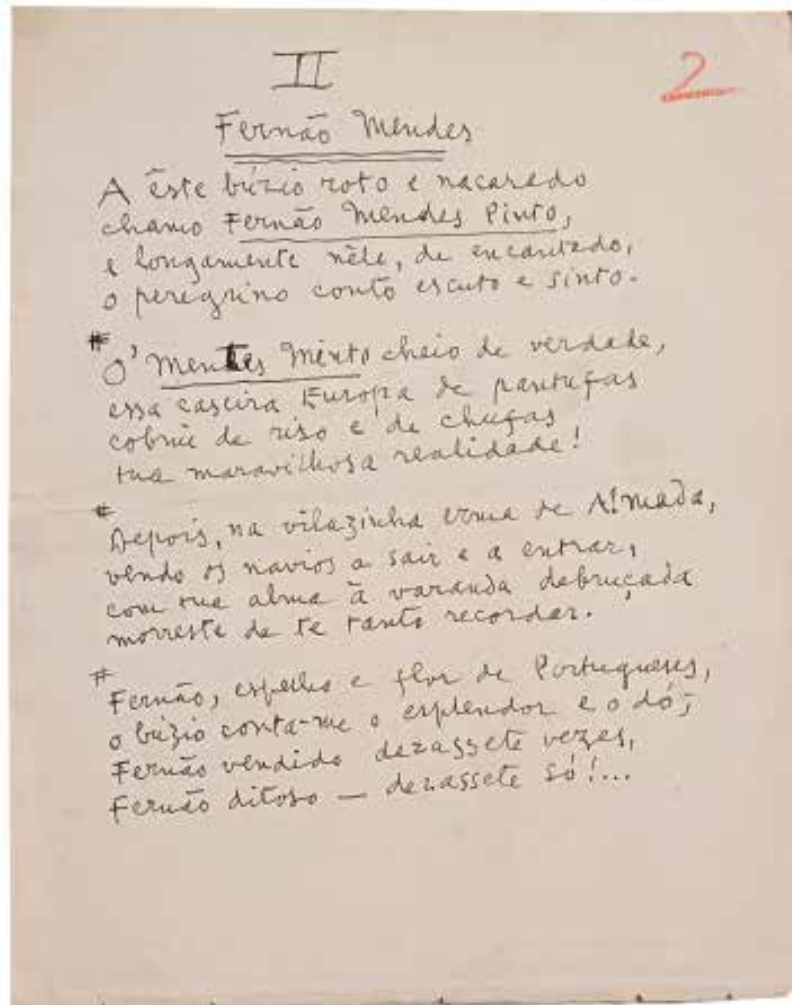 II
2
Fernão Mendes
A êste búzio roto e nacarado
chamo Fernão Mendes Pinto,
e longamente nêle, de encantado,
o peregrino conto escuto e sinto.
#
Ó Mentes Minto cheio de verdade,
essa caseira Europa de pantufas
cobriu de riso e de chufas
tua maravilhosa realidade!
#
Depois, na vilazinha erma de Almada,
vendo os navios a sair e a entrar,
com tua alma à varanda debruçada
morreste de te tanto recordar.
#
Fernão, espelho e flor de Portugueses,
o búzio conta-me o esplendor e o dó;
Fernão vendido dezassete vezes,
Fernão ditoso — dezassete só!...